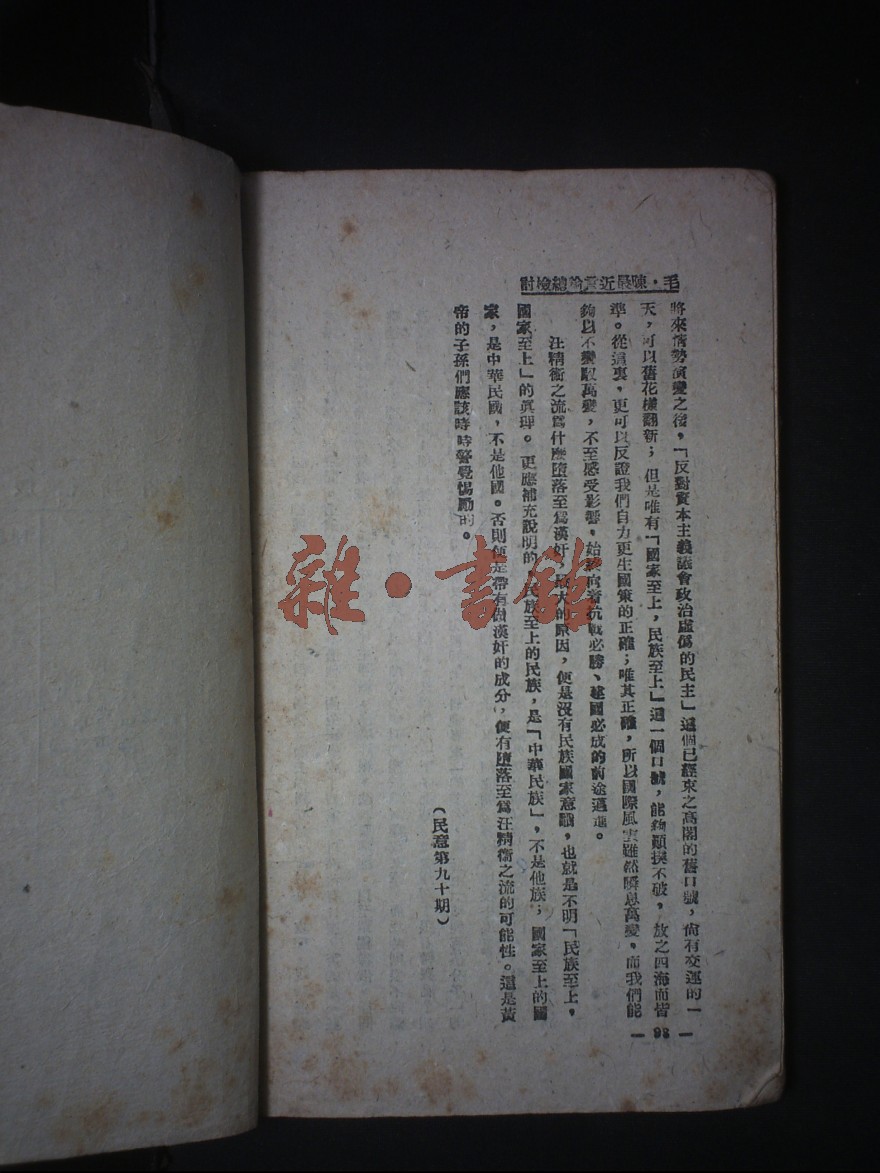 毛・陳最近言論總檢討
將來情勢演變之後，「反對資本主義議會政治虛僞的民主」這個已經束之高閣的舊口號，尙有交運的一
天，可以舊花樣翻新；但是唯有「國家至上，民族至上」這一個口號，能夠顚撲不破，放之四海而皆
準。從這裏，更可以反證我們自力更生國策的正確；唯其正確，所以國際風雲雖然瞬息萬變，而我們能
夠以不變馭萬變，不至感受影響，始終向着抗戰必勝、建國必成的前途邁進。
汪精衞之流爲什麽墮落至爲漢奸，最大的原因，便是沒有民族國家意識，也就是不明「民族至上，
國家至上」的眞理。更應補充說明的，民族至上的民族，是「中華民族」，不是他族；國家至上的國
家，是中華民國，不是他國。否則便是帶有做漢奸的成分，便有墮落至爲汪精衞之流的可能性。這是黃
帝的子孫們應該時時警覺惕勵的。
（民意第九十期）
— 98 —
雜・書館